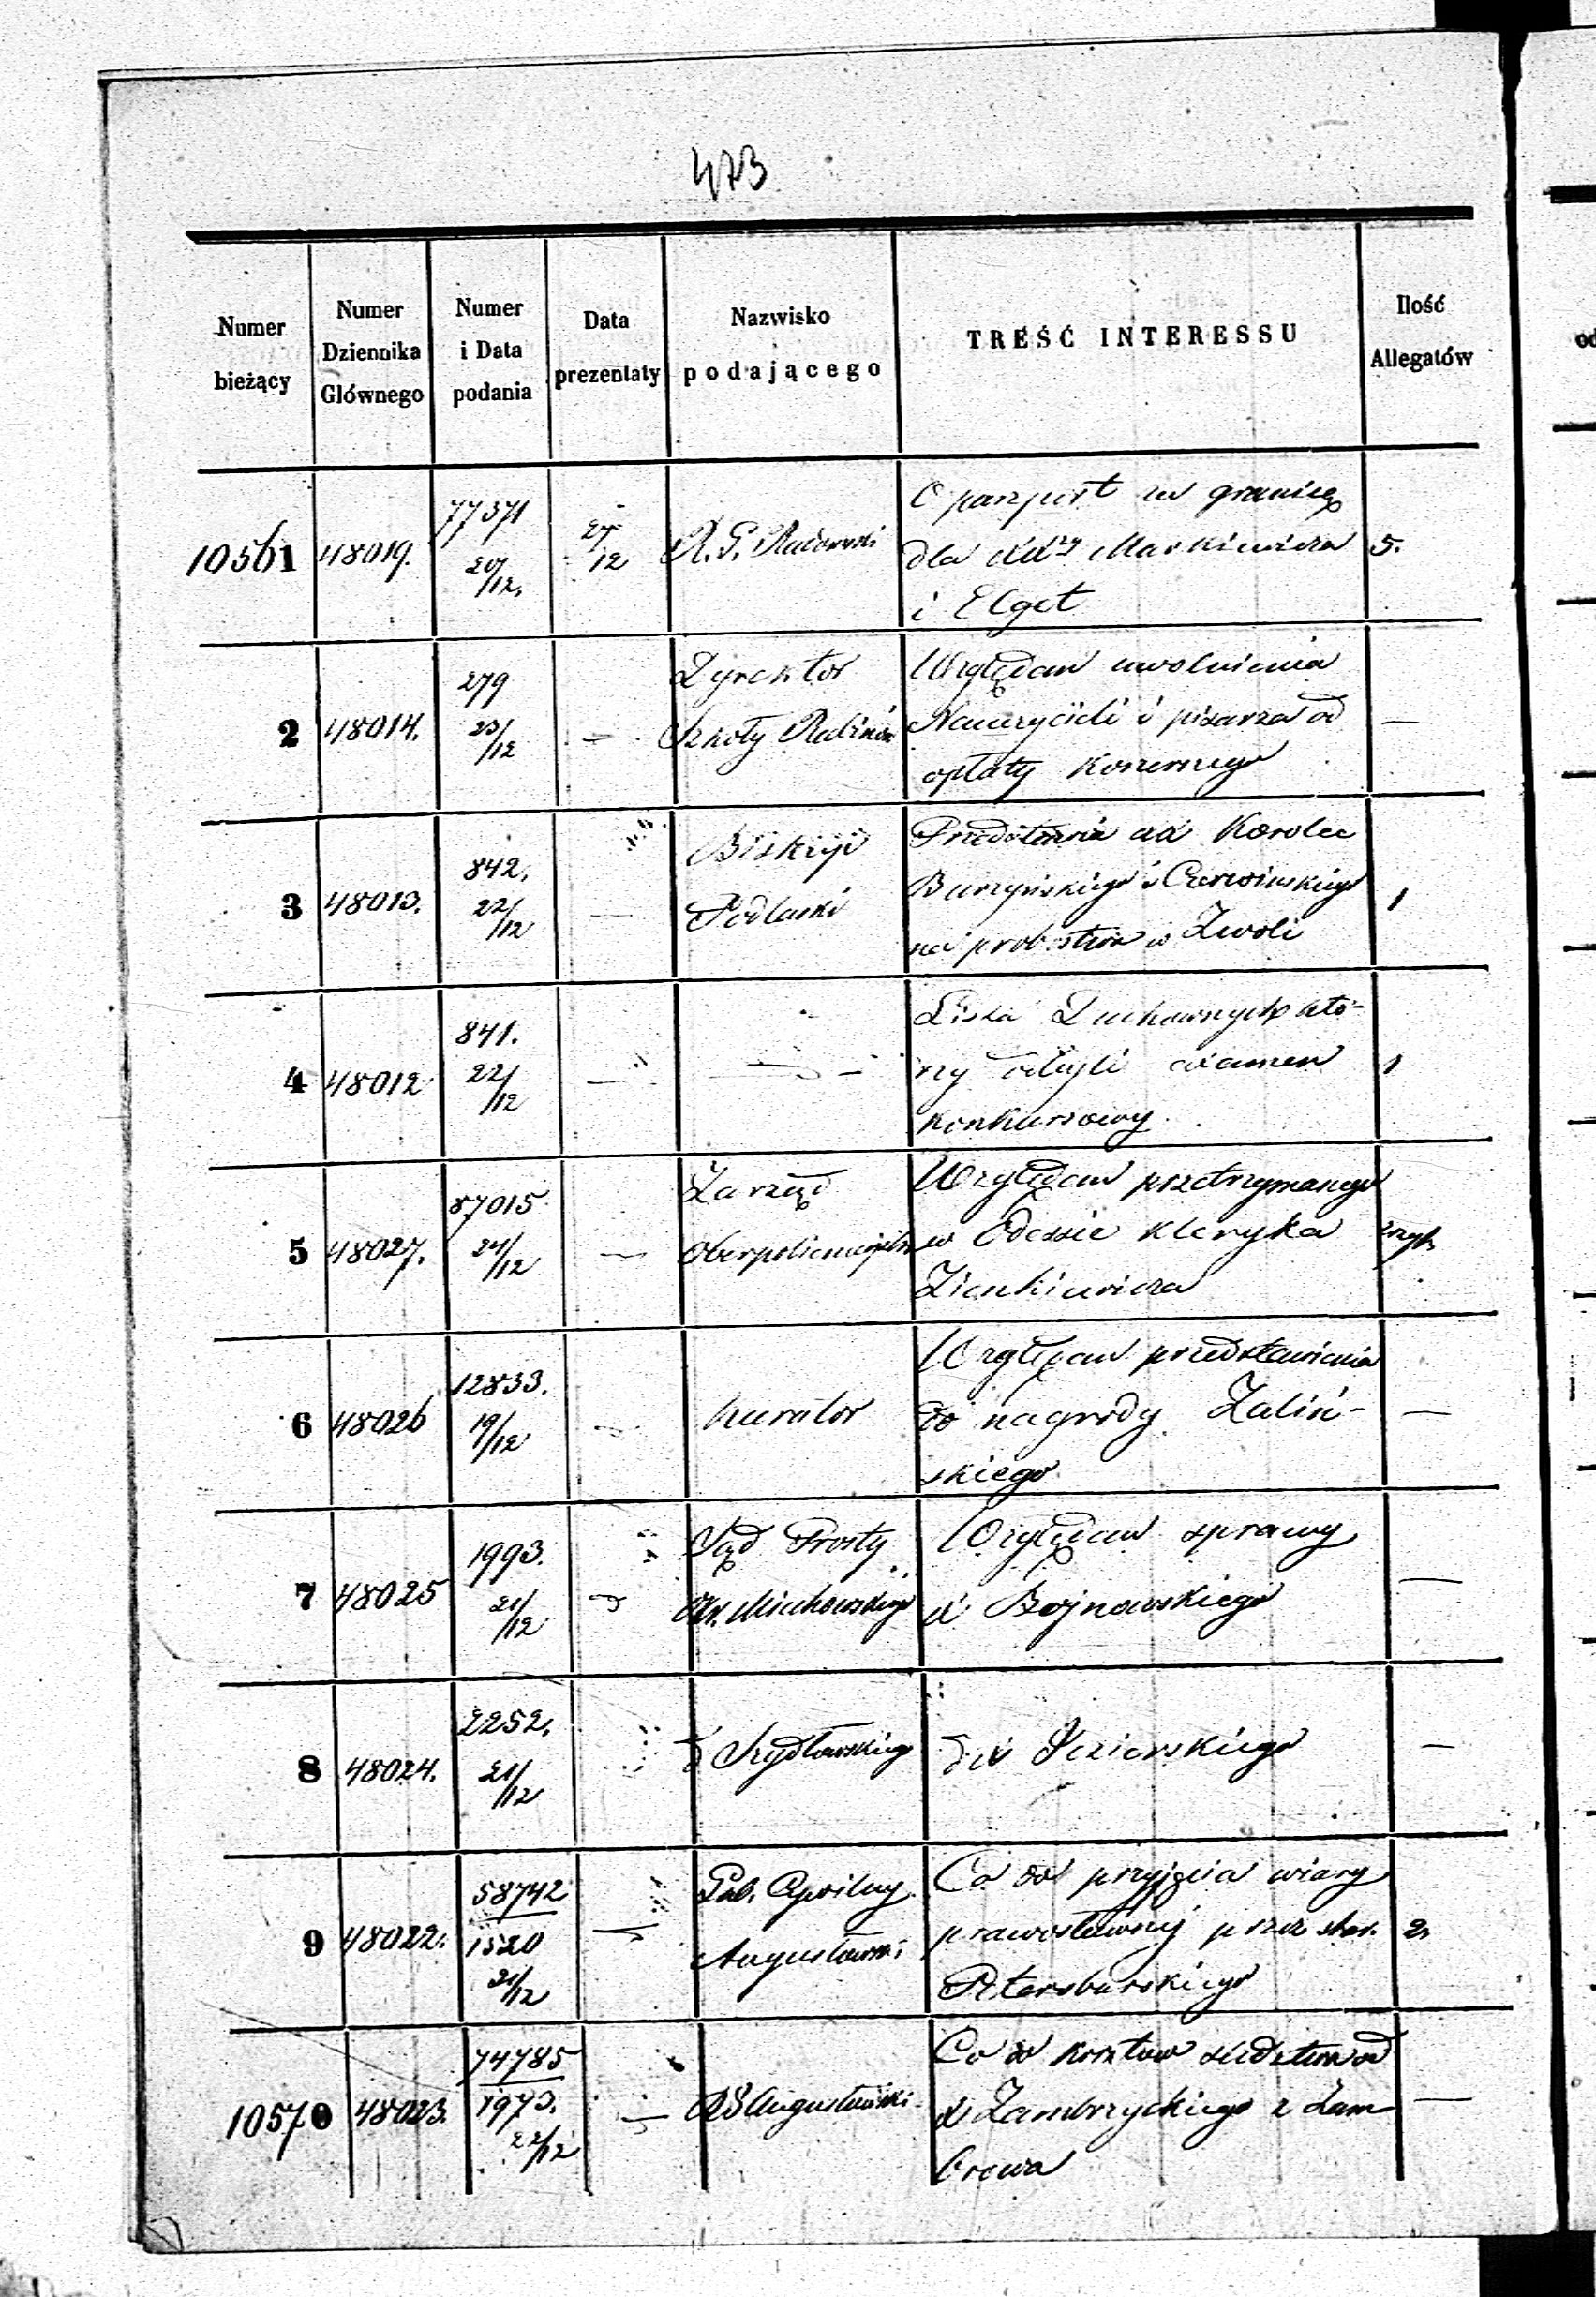 473
Numer bieżący
Numer Dziennika Głównego
Numer i Data podania
Data prezentaty
Nazwisko podającego
TREŚĆ INTERESSU
Ilość Allegatów
10561
48019.
77371
20/12.
27/12
R. G. Radomski
O paszport za granicę
dla Markiewicza
i Elget
5.
2
48014.
279
23/12
—
Dyrektor
Szkoły
Względem uwolnienia
Nauczycieli i pisarza od
opłaty koszernego
—
3
48013.
842.
22/12
—
Biskup
Podlaski
Karola
Burzyńskiego i Czerwińskiego
na probostwo w Zwoli
1
4
48012
841.
22/12
—
—
Lista Duchownych któ-
rzy odbyli examen
konkursowy.
1
5
48027.
87015
24/12
—
Zarząd
Względem przetrzymanego
w Odessie kleryka
Zienkiewicza
6
48026
12833.
19/12
—
Kurator
Względem przedstawienia
do nagrody Zaliń-
skiego
—
7
48025
1993.
21/12
Sąd Prosty
Okr. Miechowskiego
Względem sprawy
X Bojnowskiego
—
8
48024.
2252.
21/12
d Szydłowskiego
d X Jezierskiego
—
9
48022.
58742
1520
21/12
—
Gub. Cywilny
Augustowski
Co do przyjęcia wiary
prawosławnej przez
Petersburskiego
2.
10570
48023.
74785
1973.
22/12
—
RG Augustowski
Co do kosztów śledztwa od
X Zambrzyckiego z Zam
browa
—